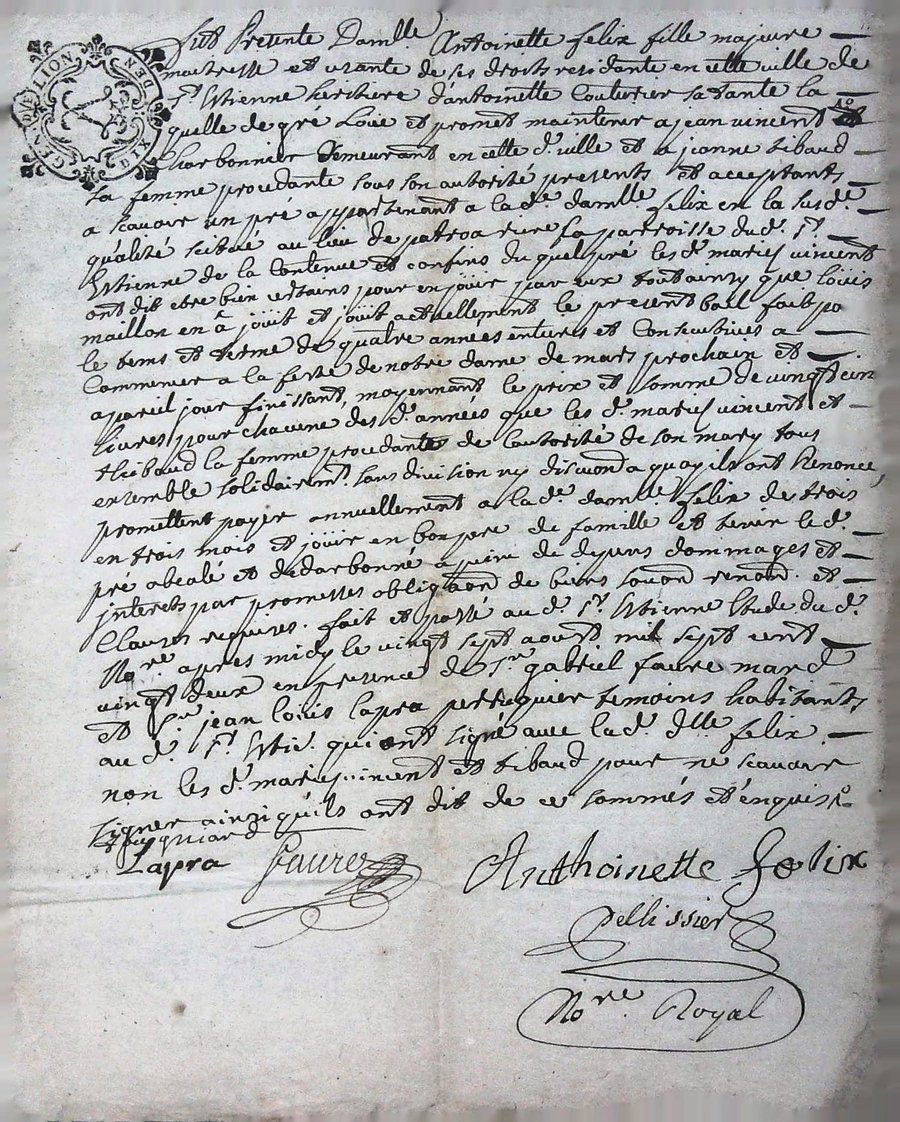 GEN. DE LION
DIX DEN
fut Presente Damlle Antoinette felix fille majeure
maitresse et usante de ses droits residante en cette ville de
st. Estienne heritiere d'antoinette Couturier sa tante la
quelle de gré Loue et promet maintenir a jean vincent
charbonnier demeurant en cette de. ville et a jeanne tibaud
sa femme procedante sous son autorité presents et acceptants
a scavoir un pré appartenant a lade. damlle felix en la susde.
quéalité scitué au lieu de patroa riere la parroisse dud. st.
Estienne de la Contenue et confins du quel pré les d. mariés vincent
ont dit etre bien certains pour en jouir par eux tout ainzy que Louis
maillon en â joüit et joüit actuellement le present bail fait po
le tems et terme de quatre années entieres et Consecutives a
Commencer a la feste de notre dame de mars prochain et
a pareil jour finissant, moyennant le prix et somme de vingt cin
livres pour chacune des d. années que les d. mariés vincent et
thibaud la femme procedante de l'autorité de son mary tous
ensemble solidairemt. sans division ny discuond a quoy ils ont Renoncé
promettent payer annuellement a lade. damlle felix de trois
en trois mois et joüir en bon pere de famille et tenir led.
pré abealé et dedarbonné a peine de depens dommages et
interets par promesses obligaond de biens souond renond. et
Clauses requises. fait et passé aud. st. Estienne Etude dud.
Nore. apres midy le vingt sept aoust mil sept cent
vingt deux en presence de sr. gabriel faure marcd
et sr. jean Louis Lapra perruquier temoins habitants
au d. st. Estie. qui ont signé avec lad. dlle felix.
non les d. mariés vincent et tibaud pour ne scavoir
signer ainzi qu'ils ont dit de ce sommés et enquis
Lapra Faure Anthoinette Felix
pellissier
Nore. Royal